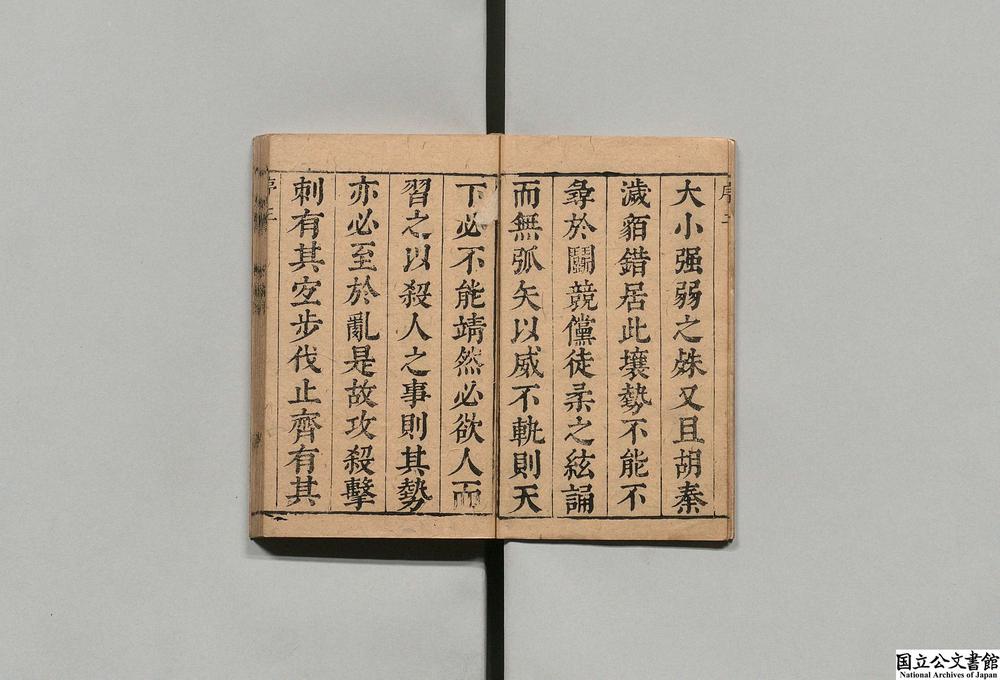 大小强弱之殊又且胡秦
濊貊錯居此壤勢不能不
尋於鬪競儻徒柔之絃誦
而無弧矢以威不軌則天
下必不能靖然必欲人而
習之以殺人之事則其勢
亦必至於亂是故攻殺擊
刺有其宜步伐止齊有其
国立公文書館
National Archives of Japan